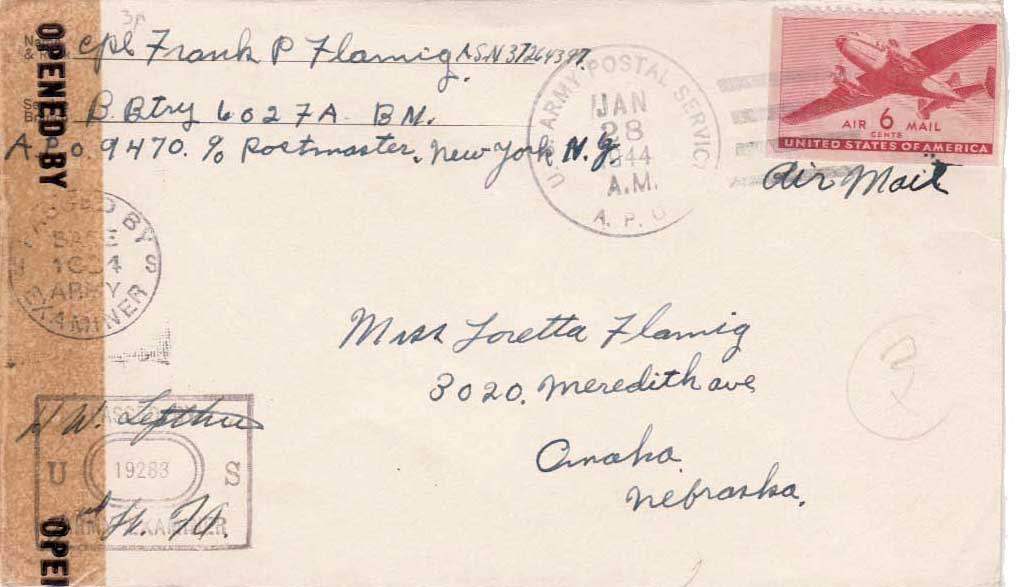 OPENED BY
Cpl Frank P Flamig A.S.N 37264397.
B Btry 602 7A BN.
A.P.O. 9470. % Postmaster, New York N.Y.
U.S. ARMY POSTAL SERVICE
JAN
28
1944
A.M.
A.P.O
AIR 6 MAIL
CENTS
UNITED STATES OF AMERICA
Air Mail
BY
BASE
ARMY
EXAMINER
S
Miss Loretta Flamig
3020. Meredith ave
Omaha
Nebraska.
W.
U 19283 S
ARMY EXAMINER
OPE
3